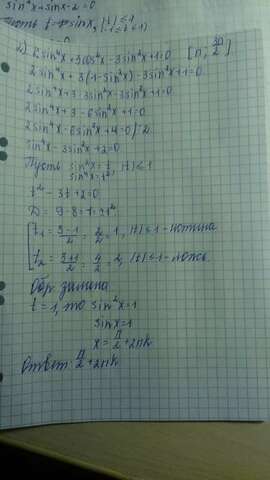 sin⁴x + sinx - 2 = 0
Пусть t = sinx, |t| ≤ 1
2sin⁴x + 3cos²x - 3sin²x + 1 = 0
2sin⁴x + 3(1 - sin²x) - 3sin²x + 1 = 0
2sin⁴x + 3 - 3sin²x - 3sin²x + 1 = 0
2sin⁴x + 3 - 6sin²x + 1 = 0
2sin⁴x - 6sin²x + 4 = 0 |:2
sin⁴x - 3sin²x + 2 = 0
Пусть sin²x = t, |t| ≤ 1
sin⁴x = t²
t² - 3t + 2 = 0
D = 9 - 8 = 1 = 1²
t₁ = (3-1)/2 = 2/2 = 1, |t| ≤ 1 - истина
t₂ = (3+1)/2 = 4/2 = 2, |t| ≤ 1 - ложь.
Обр замена
t = 1, то sin²x = 1
sinx = 1
x = π/2 + 2πk
Ответ: π/2 + 2πk